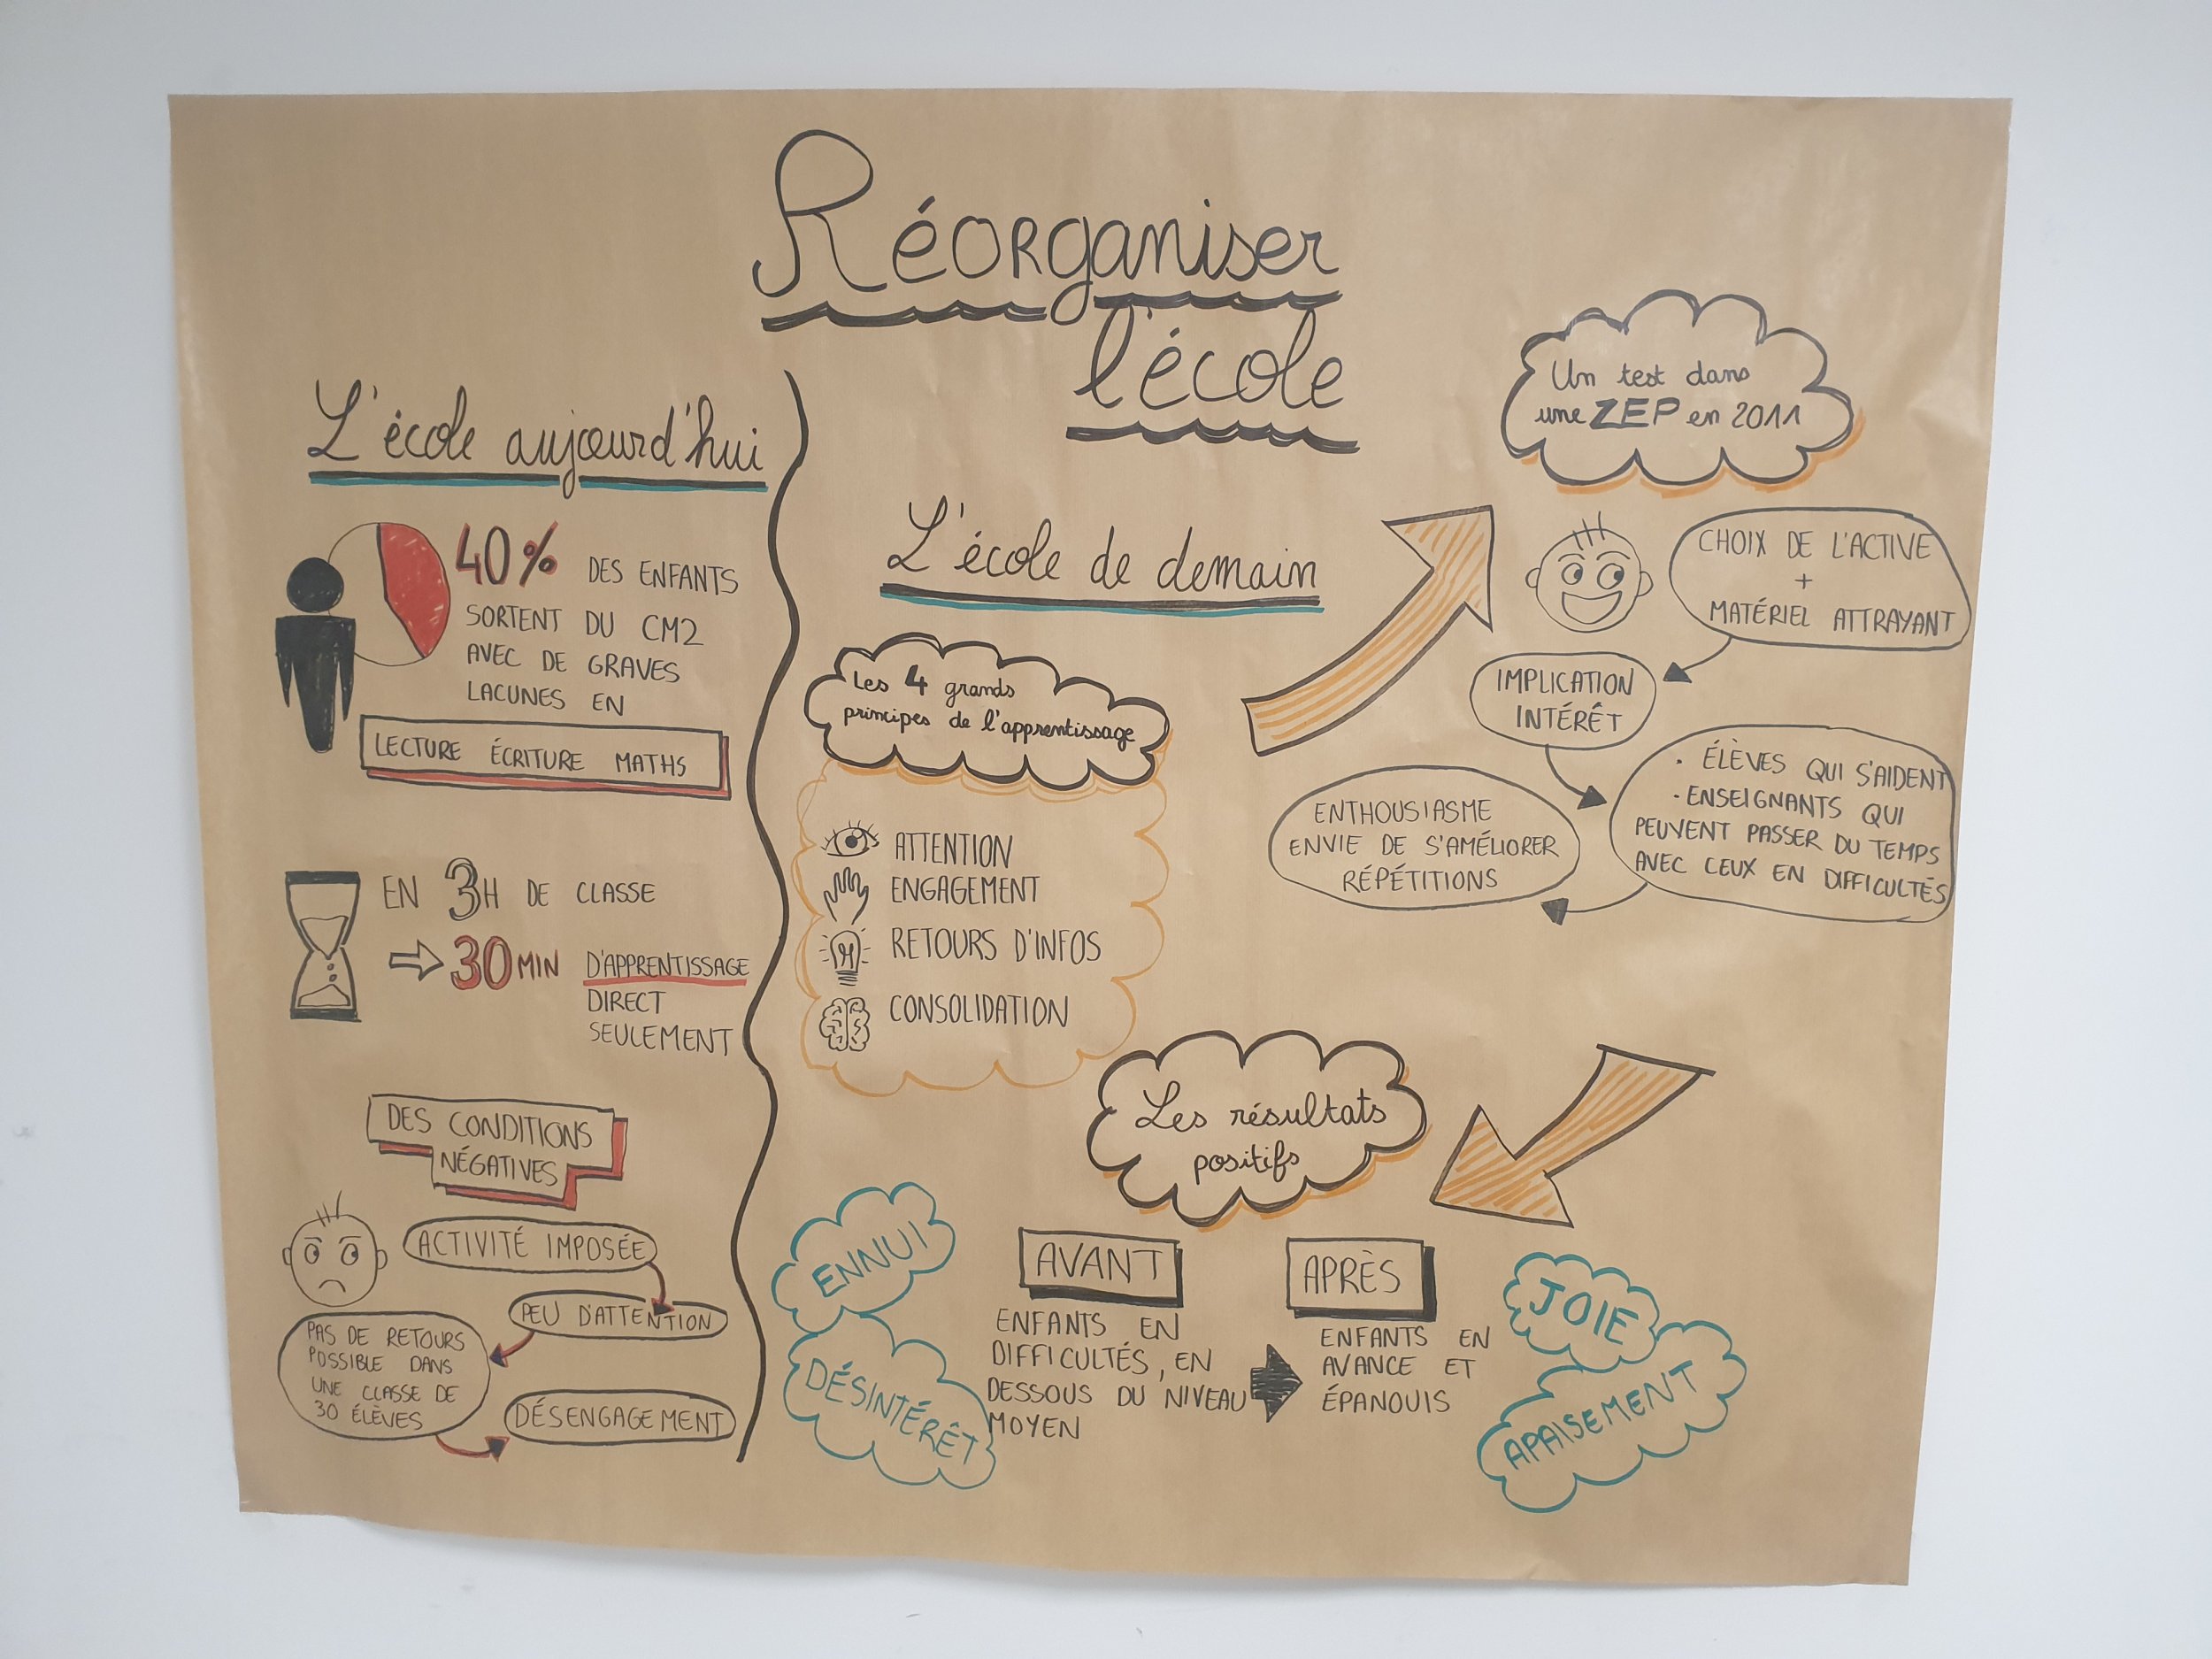 Réorganiser
l'école
L'école aujourd'hui
40% DES ENFANTS
SORTENT DU CM2
AVEC DE GRAVES
LACUNES EN
LECTURE ÉCRITURE MATHS
EN 3H DE CLASSE
30 MIN D'APPRENTISSAGE
DIRECT
SEULEMENT
DES CONDITIONS
NÉGATIVES
ACTIVITÉ IMPOSÉE
PEU D'ATTENTION
PAS DE RETOURS
POSSIBLE DANS
UNE CLASSE DE
30 ÉLÈVES
DÉSENGAGEMENT
L'école de demain
Les 4 grands
principes de l'apprentissage
ATTENTION
ENGAGEMENT
RETOURS D'INFOS
CONSOLIDATION
Un test dans
une ZEP en 2011
CHOIX DE L'ACTIVE
+
MATÉRIEL ATTRAYANT
IMPLICATION
INTÉRÊT
• ÉLÈVES QUI S'AIDENT
- ENSEIGNANTS QUI
PEUVENT PASSER DU TEMPS
AVEC CEUX EN DIFFICULTÉS
ENTHOUSIASME
ENVIE DE S'AMÉLIORER
RÉPÉTITIONS
Les résultats
positifs
ENNUI
DÉSINTÉRÊT
AVANT
ENFANTS EN
DIFFICULTÉS, EN
DESSOUS DU NIVEAU
MOYEN
APRÈS
ENFANTS EN
AVANCE ET
ÉPANOUIS
JOIE
APAISEMENT